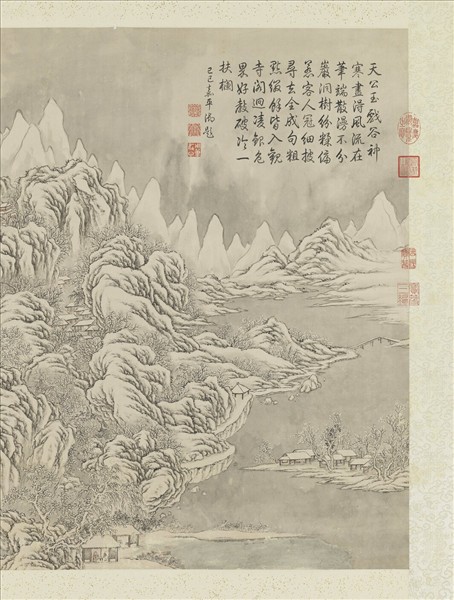 天公玉戲谷神
寒畫得風流在
筆端散漫不分
巖洞樹紛糅偏
著客人冠細披
尋去全成句粗
點綴餘皆入觀
寺閣迥凌銀色
界好教破冷一
扶欄
己巳嘉平御題